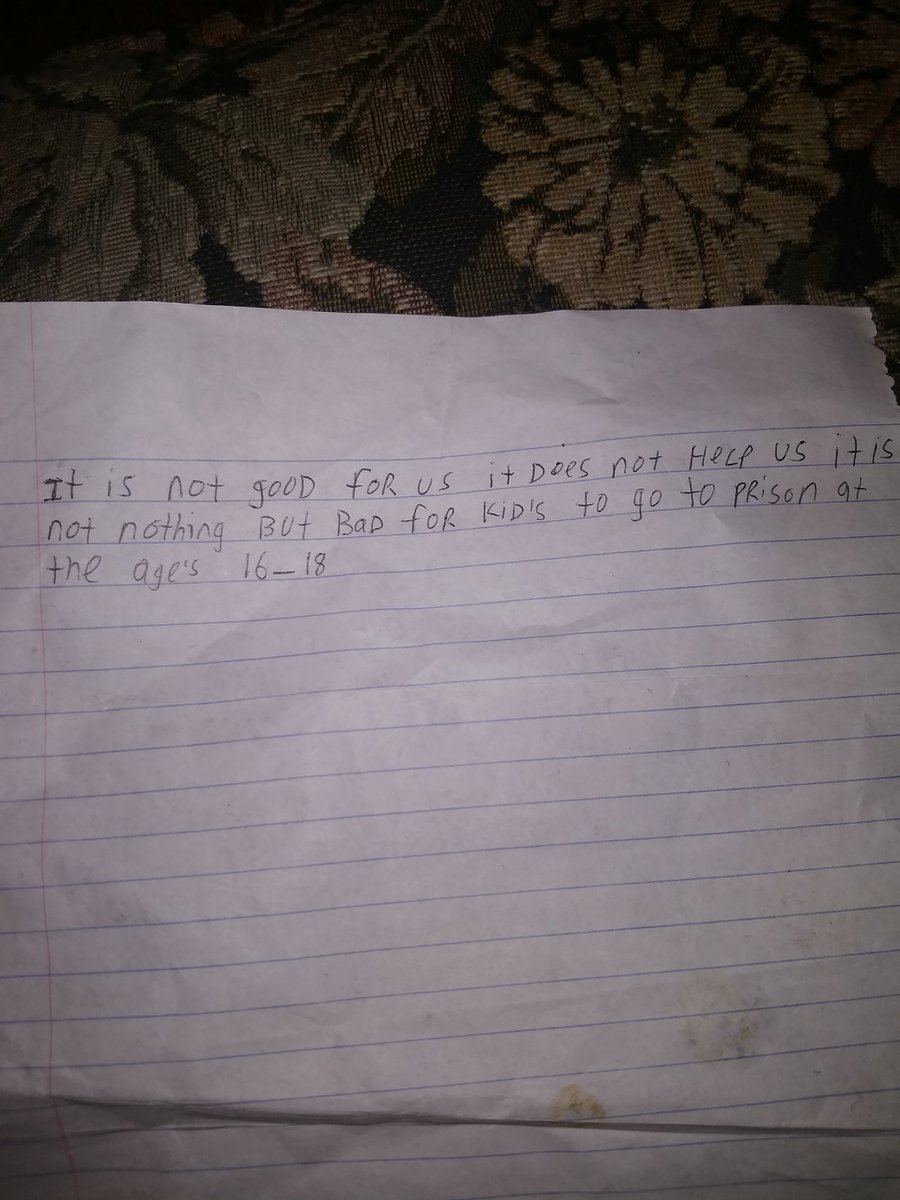 It is not gooD foR us it Does not HeLP us it is
not nothing BUt BaD foR KiD's to go to PRison at
the age's 16-18